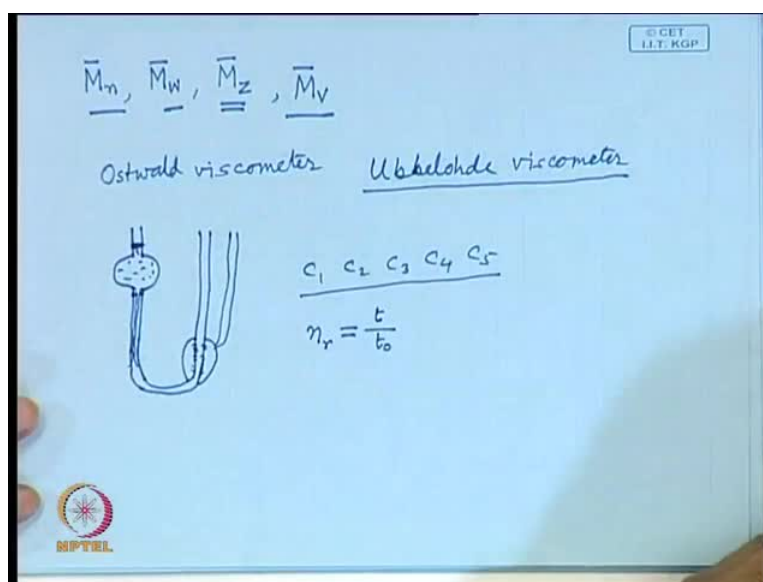 © CET
I.I.T. KGP
M̅n, M̅w, M̅z, M̅v
Ostwald viscometer Ubbelohde viscometer
C1 C2 C3 C4 C5
ηr = t/t0
NPTEL